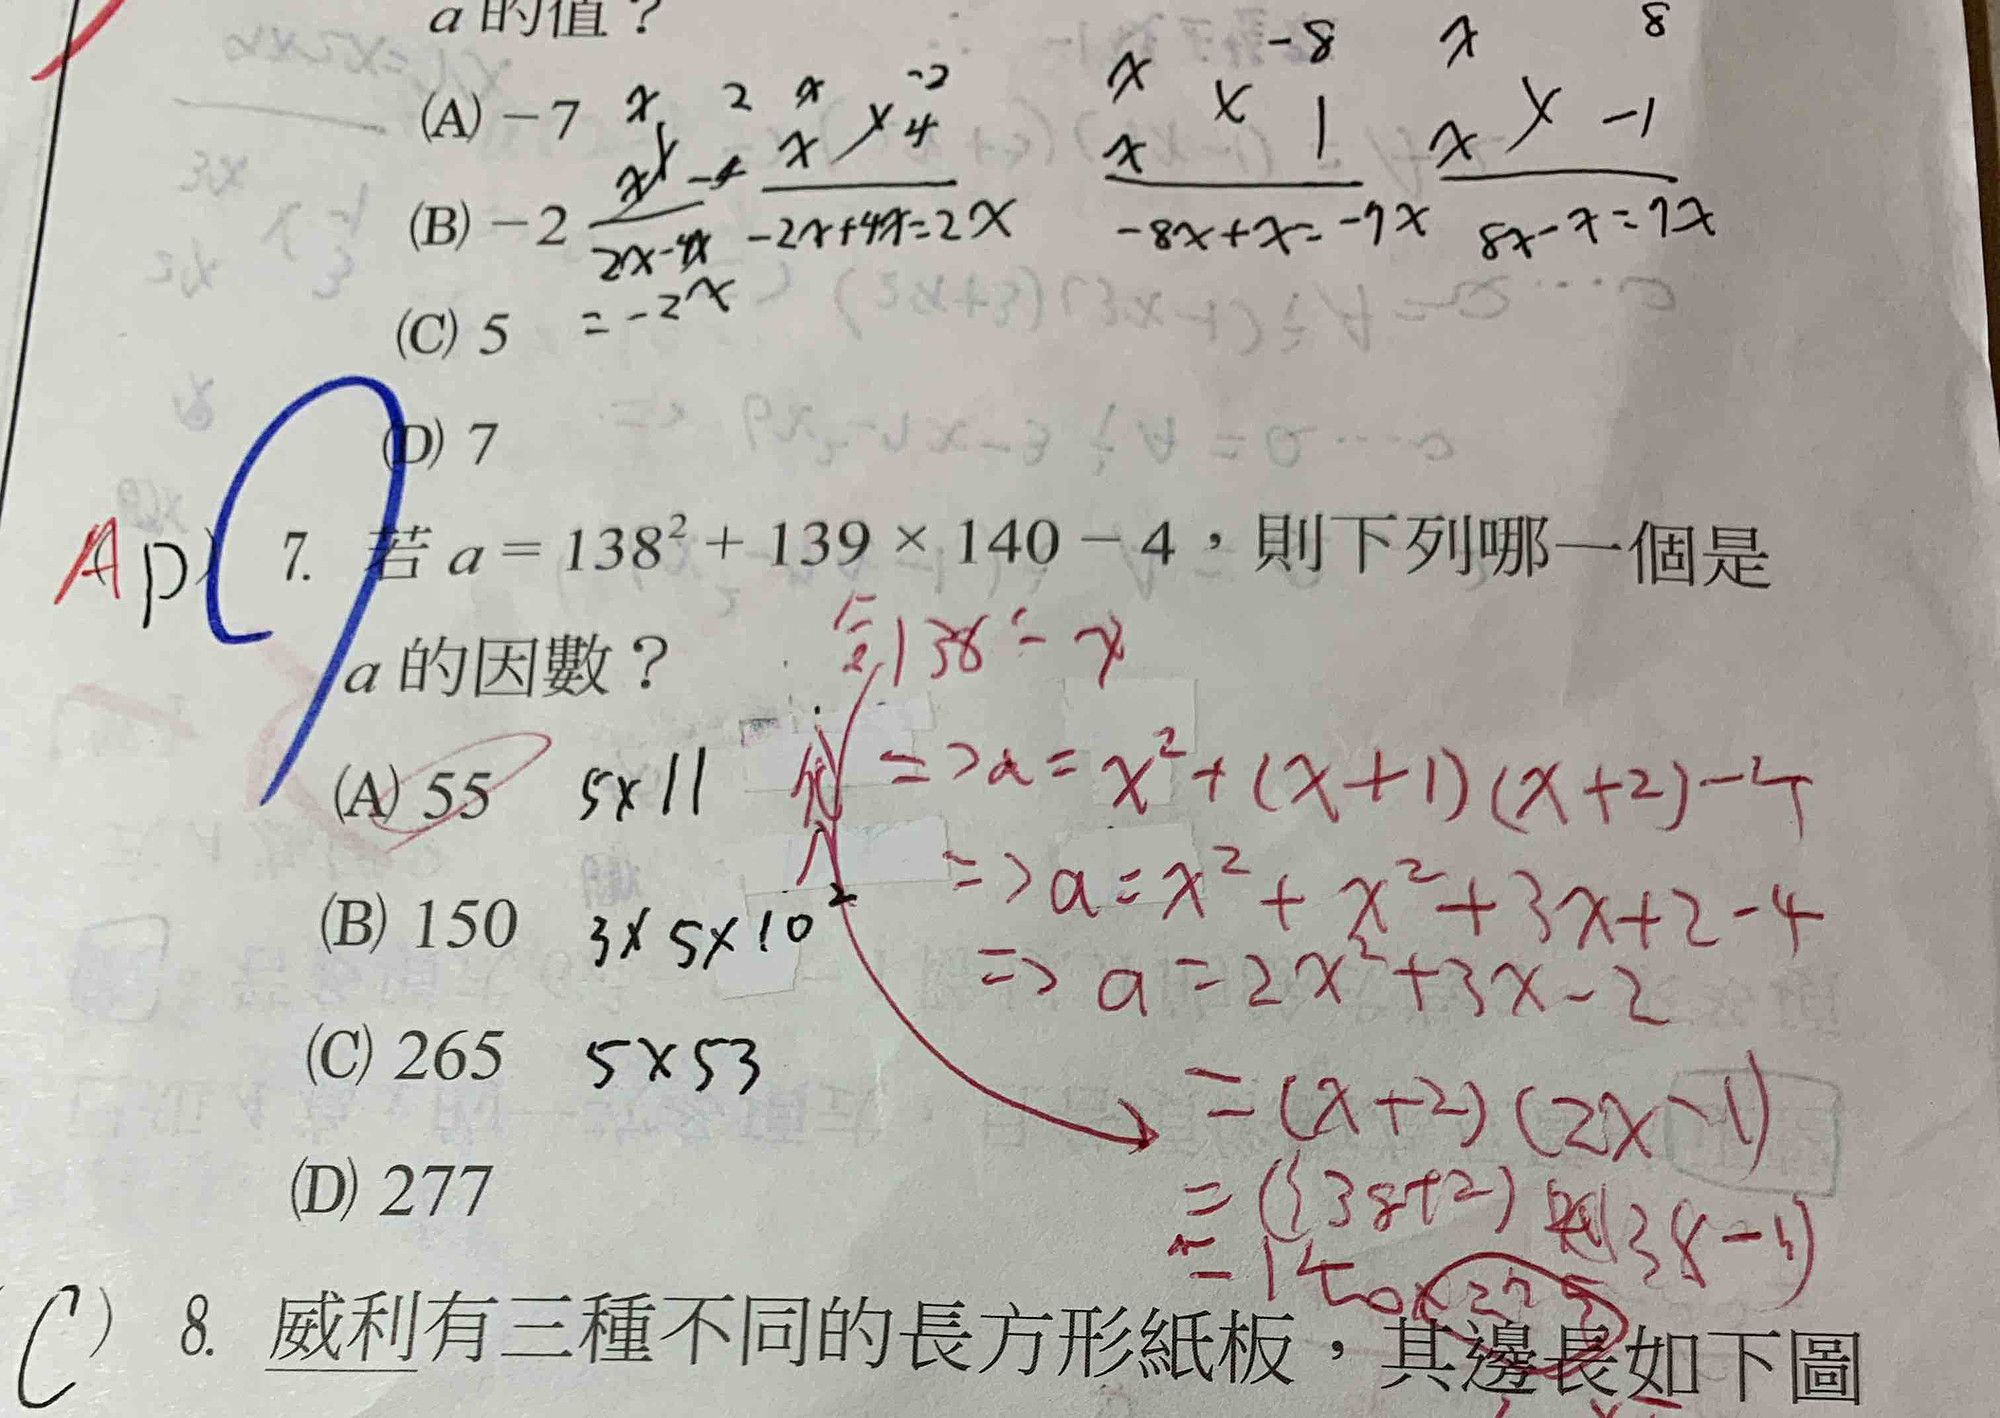 a 的值？
(A) －7
(B) －2
(C) 5
(D) 7
x 2
x -4
2x-4x
= -2x
x -2
x 4
-2x+4x=2x
x -8
x 1
-8x+x=-7x
x 8
x -1
8x-x=7x
A D
7. 若 a = 138² + 139 × 140 － 4，則下列哪一個是
a 的因數？
(A) 55 5×11
(B) 150 3×5×10²
(C) 265 5×53
(D) 277
138=x
=>a=x²+(x+1)(x+2)-4
=>a=x²+x²+3x+2-4
=>a=2x²+3x-2
=(x+2)(2x-1)
=(138+2)
=140×275
C) 8. 威利有三種不同的長方形紙板，其邊長如下圖